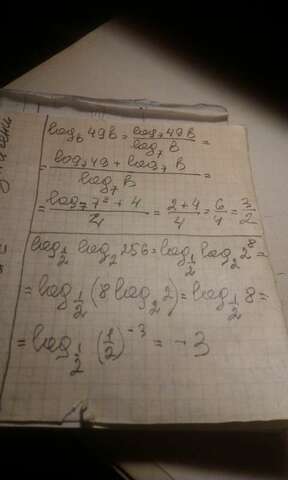 log_b 49b = log_7 49b / log_7 b =
= (log_7 49 + log_7 b) / log_7 b =
= (log_7 7² + 4) / 4 = (2+4)/4 = 6/4 = 3/2
log_{1/2} log_2 256 = log_{1/2} log_2 2⁸ =
= log_{1/2} (8 log_2 2) = log_{1/2} 8 =
= log_{1/2} (1/2)^{-3} = -3